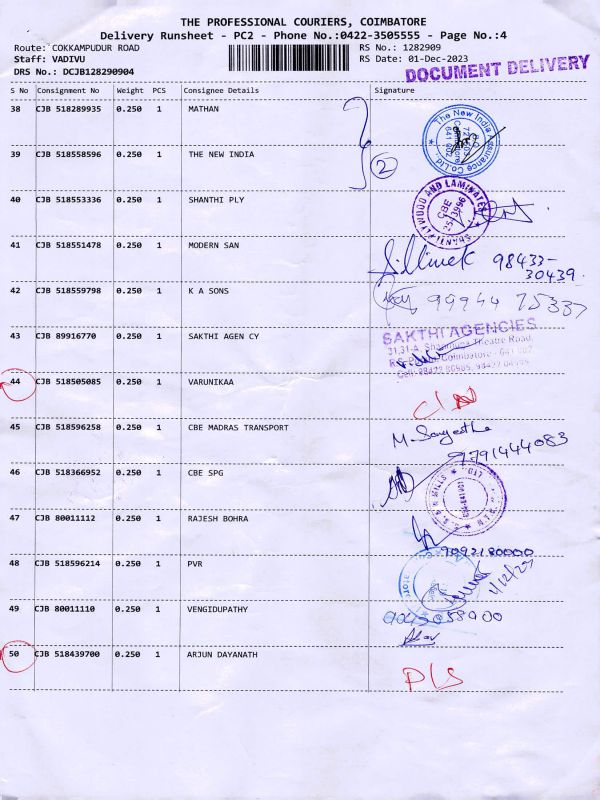 THE PROFESSIONAL COURIERS, COIMBATORE
Delivery Runsheet - PC2 - Phone No.:0422-3505555 - Page No.:4
Route: COKKAMPUDUR ROAD RS No.: 1282909
Staff: VADIVU RS Date: 01-Dec-2023
DRS No.: DCJB128290904 DOCUMENT DELIVERY
S No Consignment No Weight PCS Consignee Details Signature
38 CJB 518289935 0.250 1 MATHAN
The New India Assurance Co.Ltd.
2
39 CJB 518558596 0.250 1 THE NEW INDIA
40 CJB 518553336 0.250 1 SHANTHI PLY
SHANTHI PLYWOOD AND LAMINATES
CBE
41 CJB 518551478 0.250 1 MODERN SAN
98433-
30439.
42 CJB 518559798 0.250 1 K A SONS
99944 75337
43 CJB 89916770 0.250 1 SAKTHI AGEN CY
SAKTHI AGENCIES
Theatre Road,
Coimbatore - 641 002.
44 CJB 518505085 0.250 1 VARUNIKAA
45 CJB 518596258 0.250 1 CBE MADRAS TRANSPORT
M. Sangeetha
9791444083
46 CJB 518366952 0.250 1 CBE SPG
47 CJB 80011112 0.250 1 RAJESH BOHRA
9092180000
48 CJB 518596214 0.250 1 PVR
49 CJB 80011110 0.250 1 VENGIDUPATHY
50 CJB 518439700 0.250 1 ARJUN DAYANATH